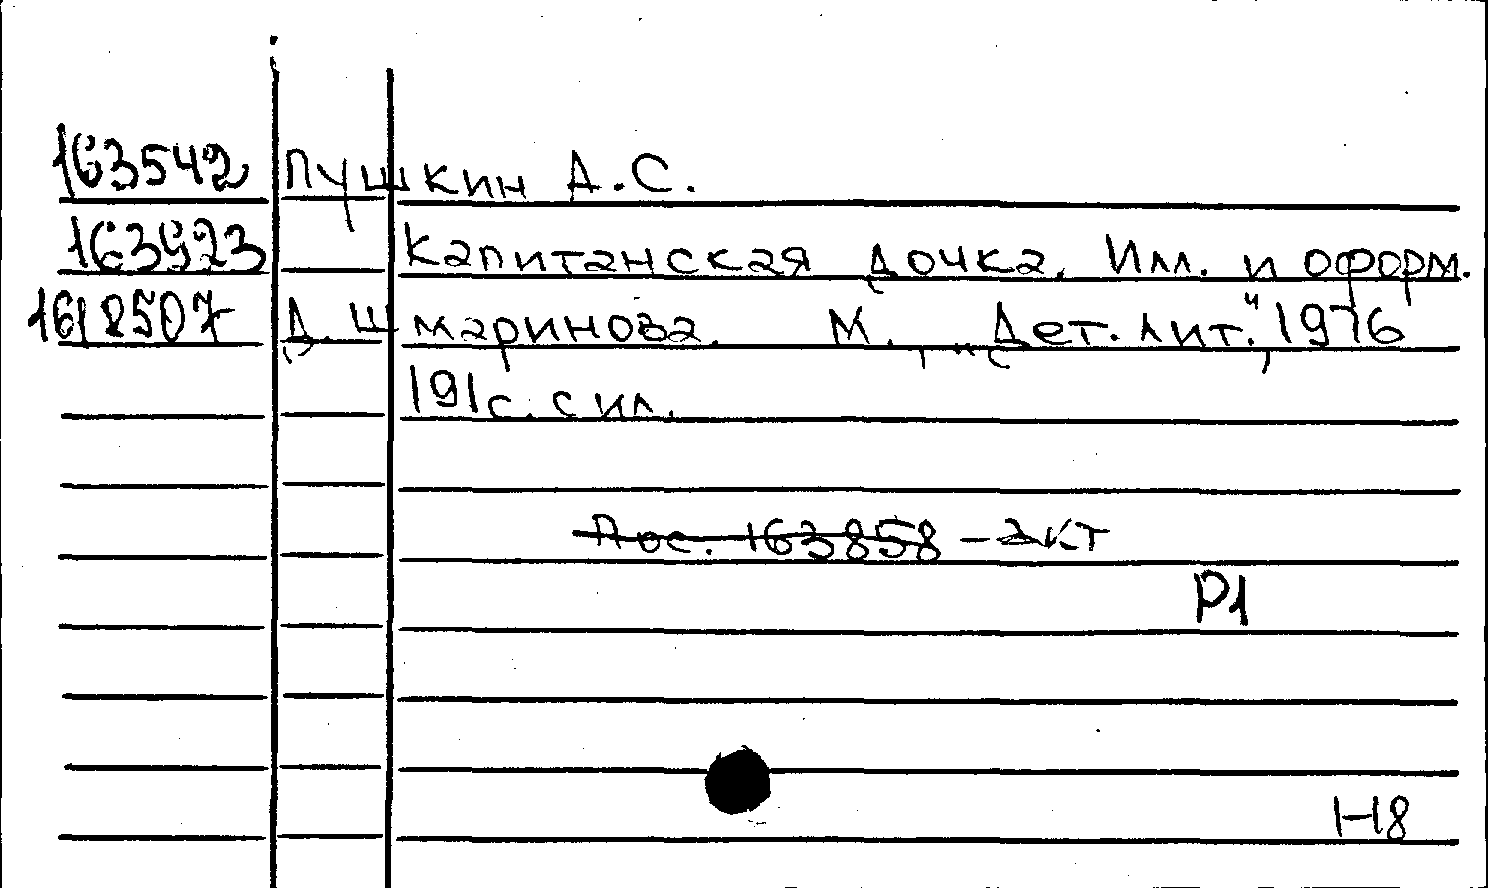 163542 Пушкин А.С.
163923 Капитанская дочка. Илл. и оформ.
1618507 Д. Шмаринова. М., "Дет. лит.", 1976
191с. с ил.
Пос. 163858 - акт
Р1
Н8